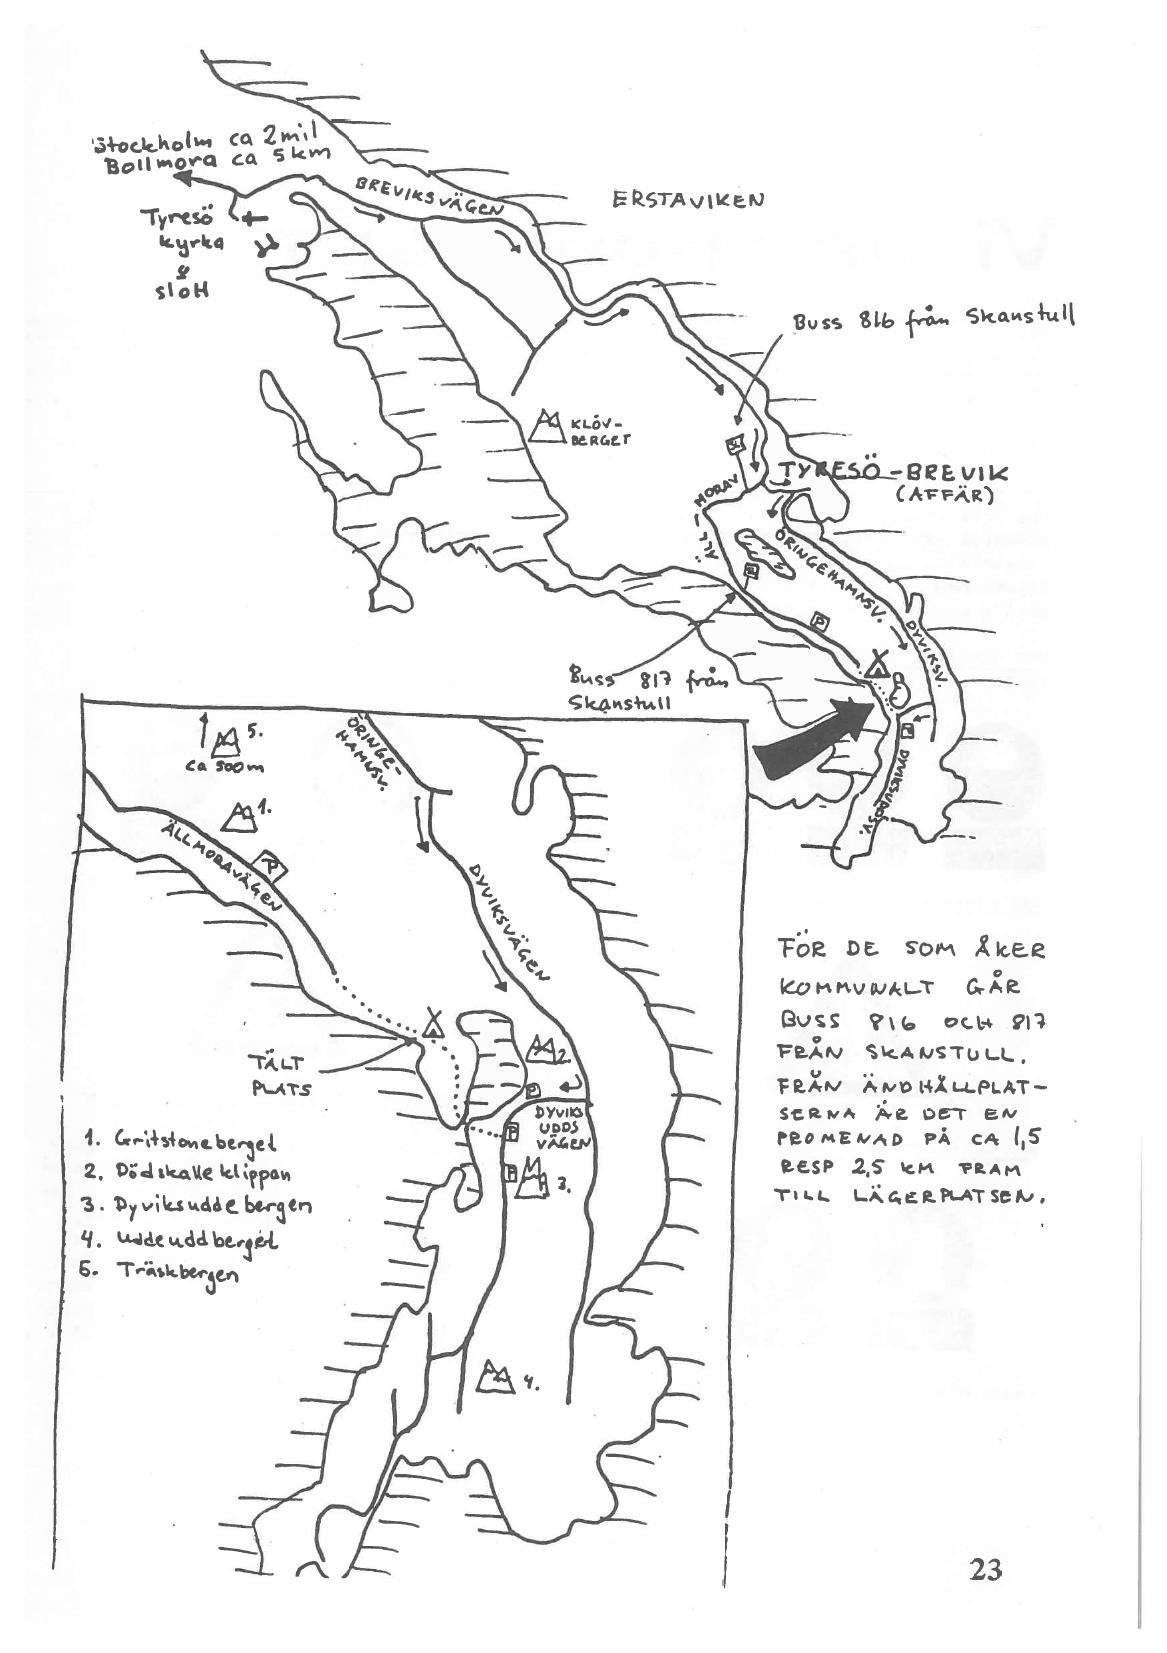 Stockholm ca 2mil
Bollmora ca 5km
BREVIKSVÄGEN
ERSTAVIKEN
Tyresö
kyrka
&
slott
Buss 816 från Skanstull
KLÖV-
BERGET
TYRESÖ-BREVIK
(AFFÄR)
ÄLL-
MORAV
ÖRINGEHAMNSV.
DYVIKSV.
P
Buss 817 från
Skanstull
P
DYVIKSUDDSV.
5.
ca 500m
ÖRINGE-
HAMNSV.
1.
ÄLLMORAVÄGEN
P
DYVIKSVÄGEN
TÄLT
PLATS
2.
P
DYVIKS
UDDS
VÄGEN
P
P
3.
4.
1. Gritstoneberget
2. Dödskalleklippan
3. Dyviksuddebergen
4. Uddeuddberget
5. Träskbergen
FÖR DE SOM ÅKER
KOMMUNALT GÅR
BUSS 816 OCH 817
FRÅN SKANSTULL.
FRÅN ÄNDHÅLLPLAT-
SERNA ÄR DET EN
PROMENAD PÅ CA 1,5
RESP 2,5 KM FRAM
TILL LÄGERPLATSEN.
23